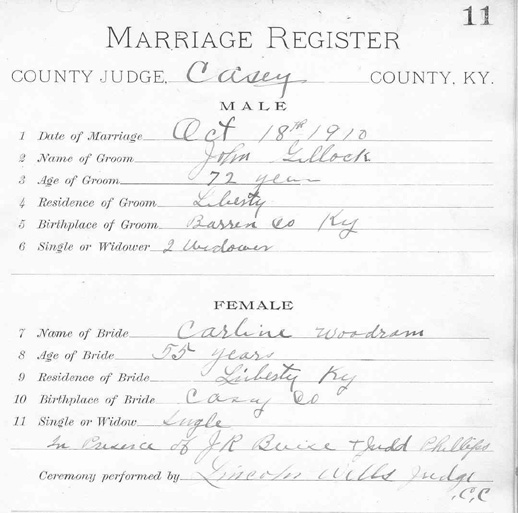 11
MARRIAGE REGISTER
COUNTY JUDGE, Casey COUNTY, KY.
MALE
1 Date of Marriage Oct 18th 1910
2 Name of Groom John Gillock
3 Age of Groom 72 years
4 Residence of Groom Liberty
5 Birthplace of Groom Barren Co Ky
6 Single or Widower 2 Widower
FEMALE
7 Name of Bride Carline Woodram
8 Age of Bride 55 years
9 Residence of Bride Liberty Ky
10 Birthplace of Bride Casey Co
11 Single or Widow Single
In Presence of J R Buise + Judd Phillips
Ceremony performed by Lincoln Wells Judge
C.C